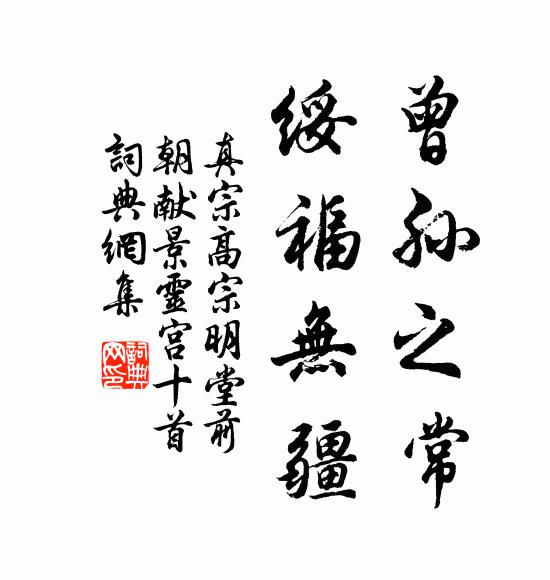 曾孙之常
綏福無疆
真宗高宗明堂前
朝献景靈宫十首
詞典網集
詞典网印